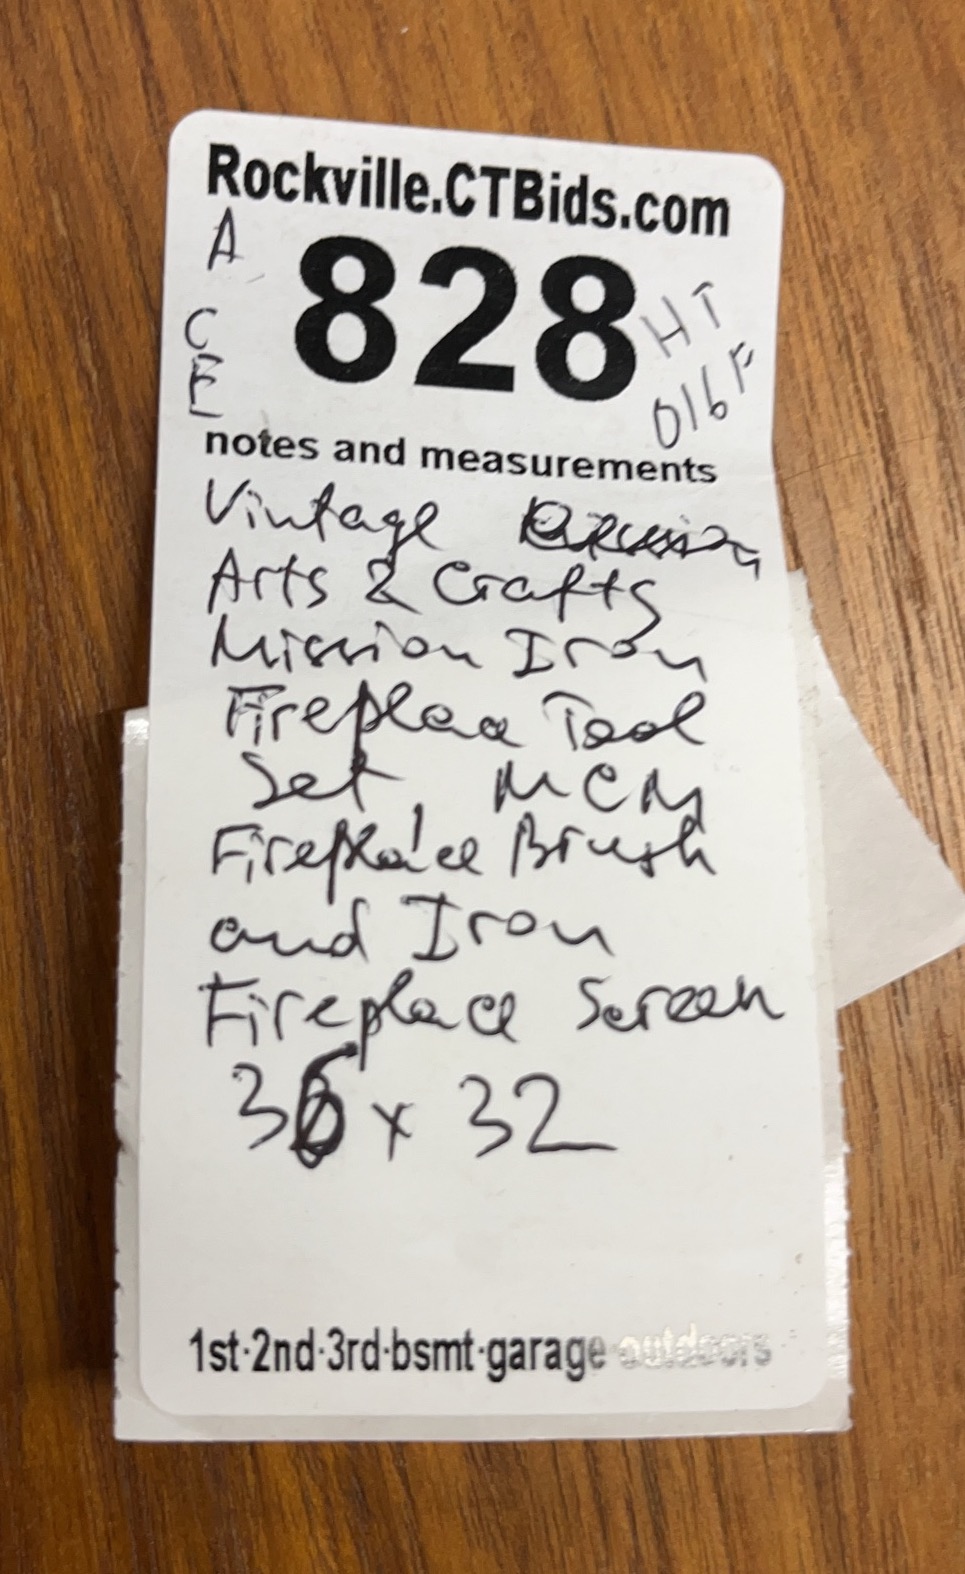 Rockville.CTBids.com
A
C
E
828
HT
016F
notes and measurements
Vintage
Arts & Crafts
Mission Iron
Fireplace Tool
Set, MCM
Fireplace Brush
and Iron
Fireplace Screen
36 x 32
1st·2nd·3rd·bsmt·garage outdoors